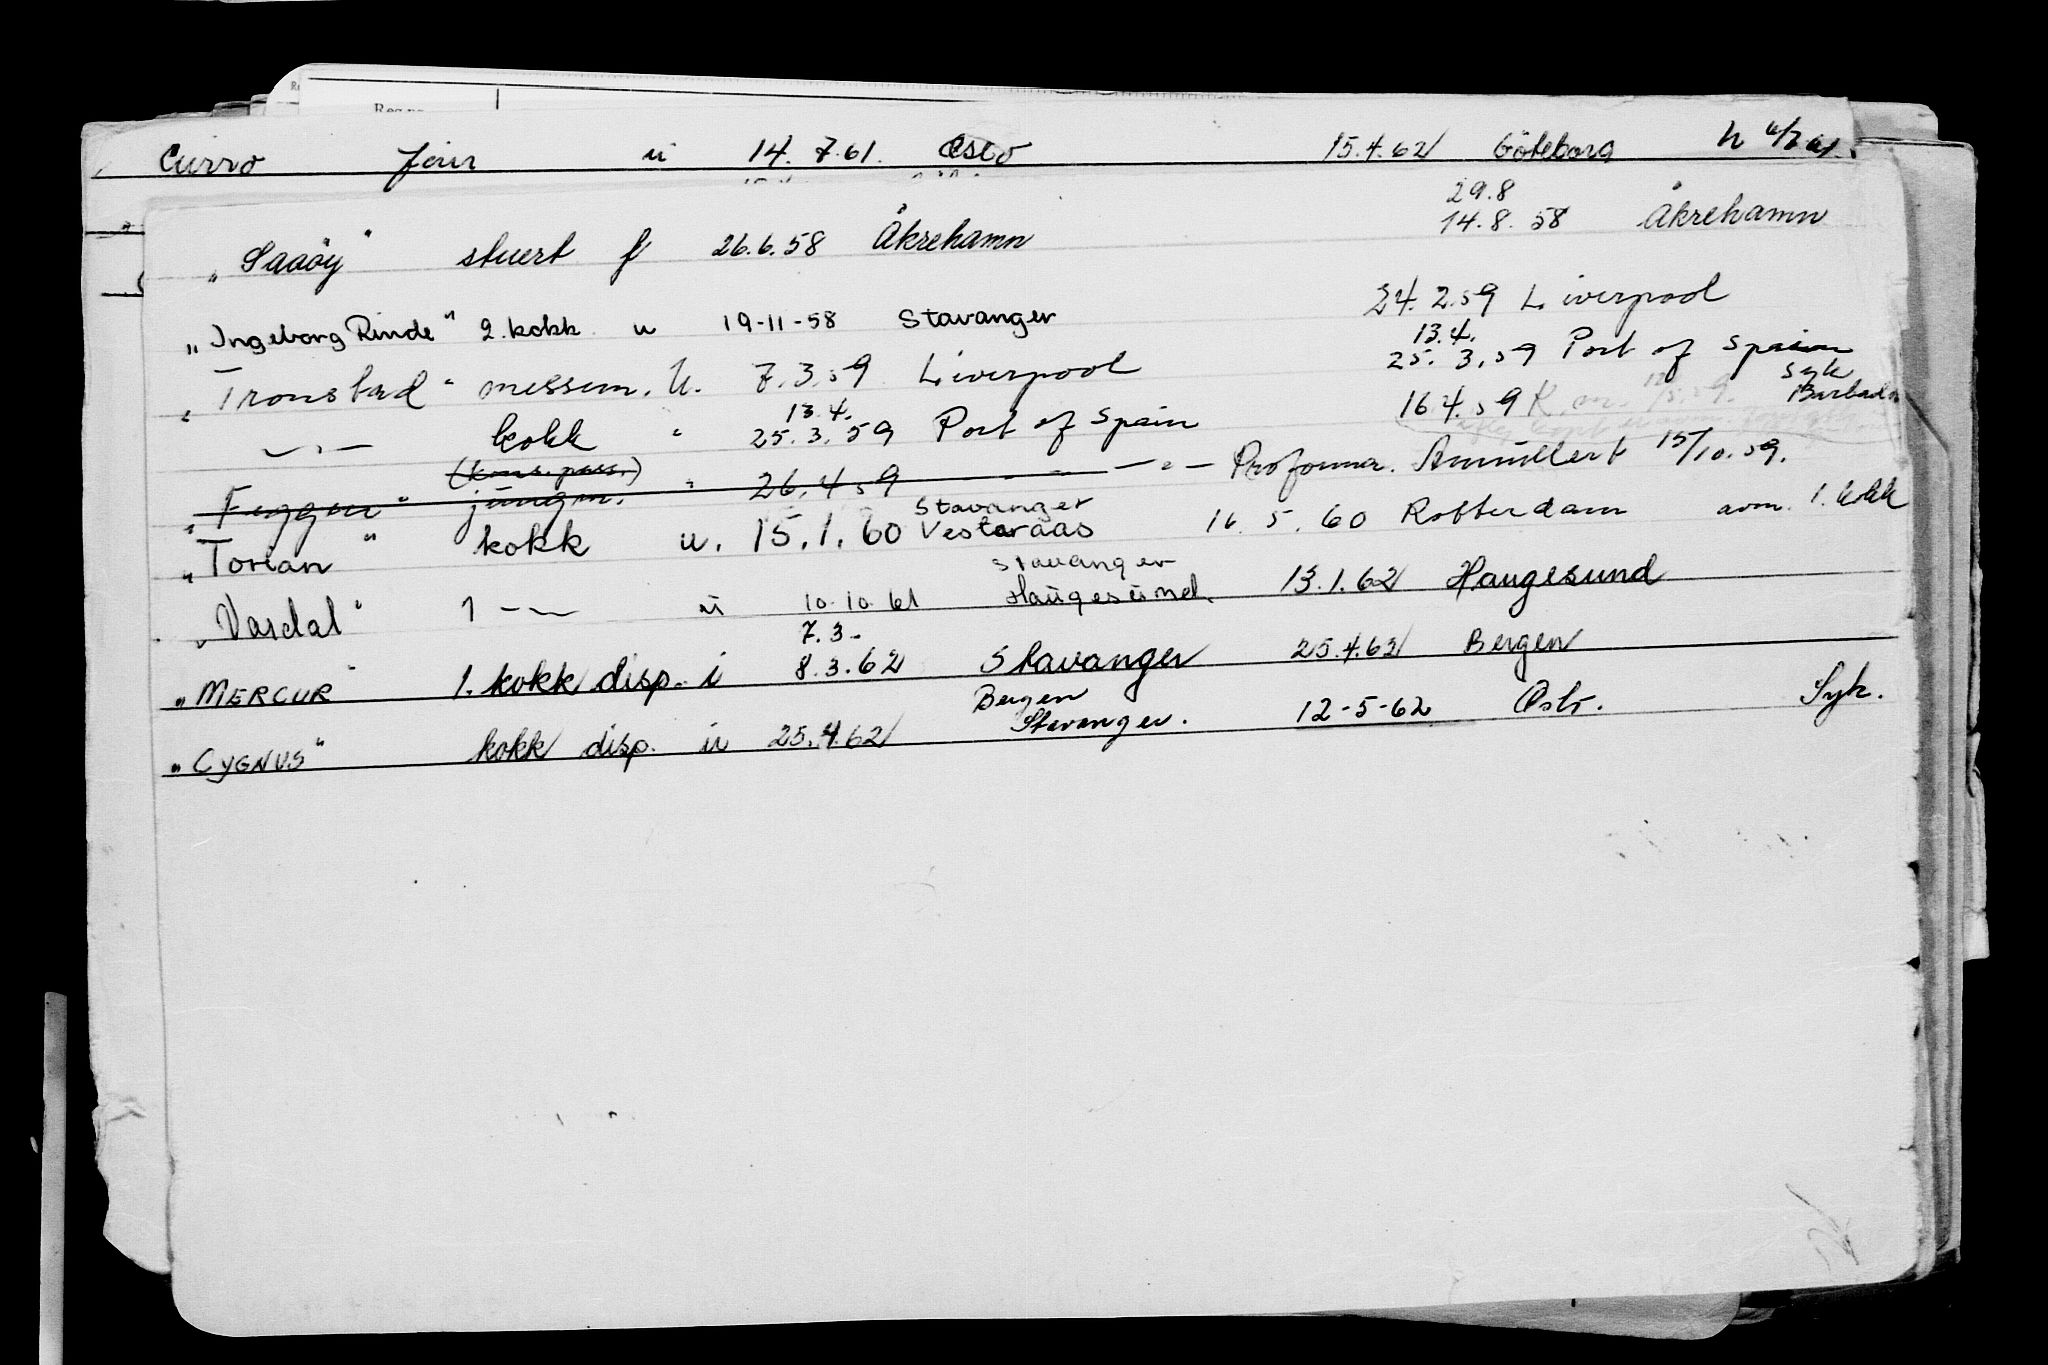 Reg.nr.
Curro Jour u 14.7.61. Oslo 15.4.62 Göteborg
29.8
"Saaöy" stuert f 26.6.58 Åkrehamn 14.8.58 Åkrehamn
"Ingeborg Rinde" 2.kokk u 19-11-58 Stavanger 24.2.59 Liverpool
13.4.
"Tronstad" messem. U. 7.3.59 Liverpool 25.3.59 Port of Spain
syk
13.4.
-"- kokk " 25.3.59 Port of Spain 16.4.59 Barbados
(kons. pass.)
"Feggen" jungm. " 26.4.59 - - -"- Proforma. Annullert 15/10.59.
Stavanger
"Torian" kokk u. 15.1.60 Vesteraas 16.5.60 Rotterdam avm. 1. kokk
Stavanger
"Vardal" 1 -"- u 10.10.61 Haugesund. 13.1.62 Haugesund
7.3-
"MERCUR" 1. kokk disp. i 8.3.62 Stavanger 25.4.62 Bergen
Bergen
"CYGNUS" kokk disp. u 25.4.62 Stavanger. 12-5-62 Oslo. Syk.